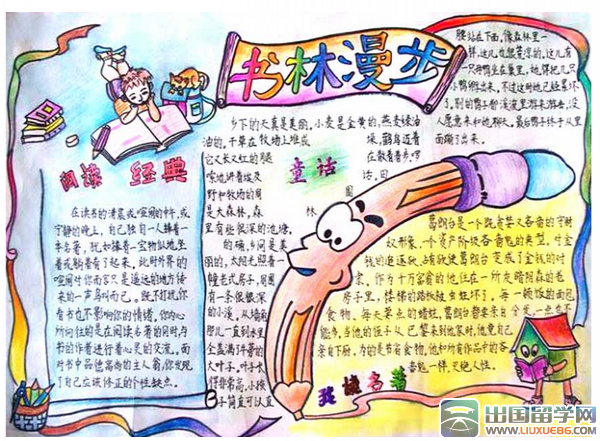 书林漫步
阅读 经典
在读书的清晨或喧闹的中午,或
宁静的晚上,自己独自一人捧着一
本名著,犹如捧着一宝物似地坐
着或躺着看了起来,此时外界的
喧闹对你而言只是遥远的地方传
来的一声鸟叫而已。既不打扰你,
看书也不影响你的情绪,你内心
所向往的是在阅读名著的同时与
书的作者进行着心灵的交流。面
对书中品德高尚的主人翁,你发现
了自己应该修正的个性缺点。
童话
乡下的天真是美丽,小麦是金黄的,燕麦绿油
油的。干草在牧场上堆成垛,鹳鸟迈着
它又长又红的腿在散着步,
喳地讲着埃及话。田
野和牧场的周围
是大森林,森林
里有些很深的池塘。
的确,乡间是美
丽的,太阳光照着一
幢老式房子,周围
有一条很深
的小溪,从墙角
那儿一直到水里
全盖满牛蒡的
大叶子。叶子长
得非常高,小孩
子简直可以直
腰站在下面,像森林里一
样,这儿也很荒凉的。这儿有
一只母鸭坐在巢里,她得把几只
小鸭孵出来。不过这时她已经累坏
了。别的鸭子都在溪流里游来游去,没
人愿意来和她聊天。最后鸭子终于从里
面蹦了出来。
我读名著
葛朗台是一个既贪婪又吝啬的守财
奴形象,一个资产阶级吝啬鬼的典型,对金
钱的追逐欲、占有欲使葛朗台变成了金钱的奴
隶。作为十万富翁的他,住在一所灰暗阴森的老
房子里,楼梯的踏板被虫蛀坏了。每一顿饭的面包
食物,每天要点的蜡烛,葛朗台都要亲自分发,一点也不
能多。当他的侄子从巴黎来到他家时,他竟自己
亲自下厨,为的是节省食物。他和所有作品中的吝
啬鬼一样,灭绝人性。
出国留学网
WWW.LIUXUE86.COM